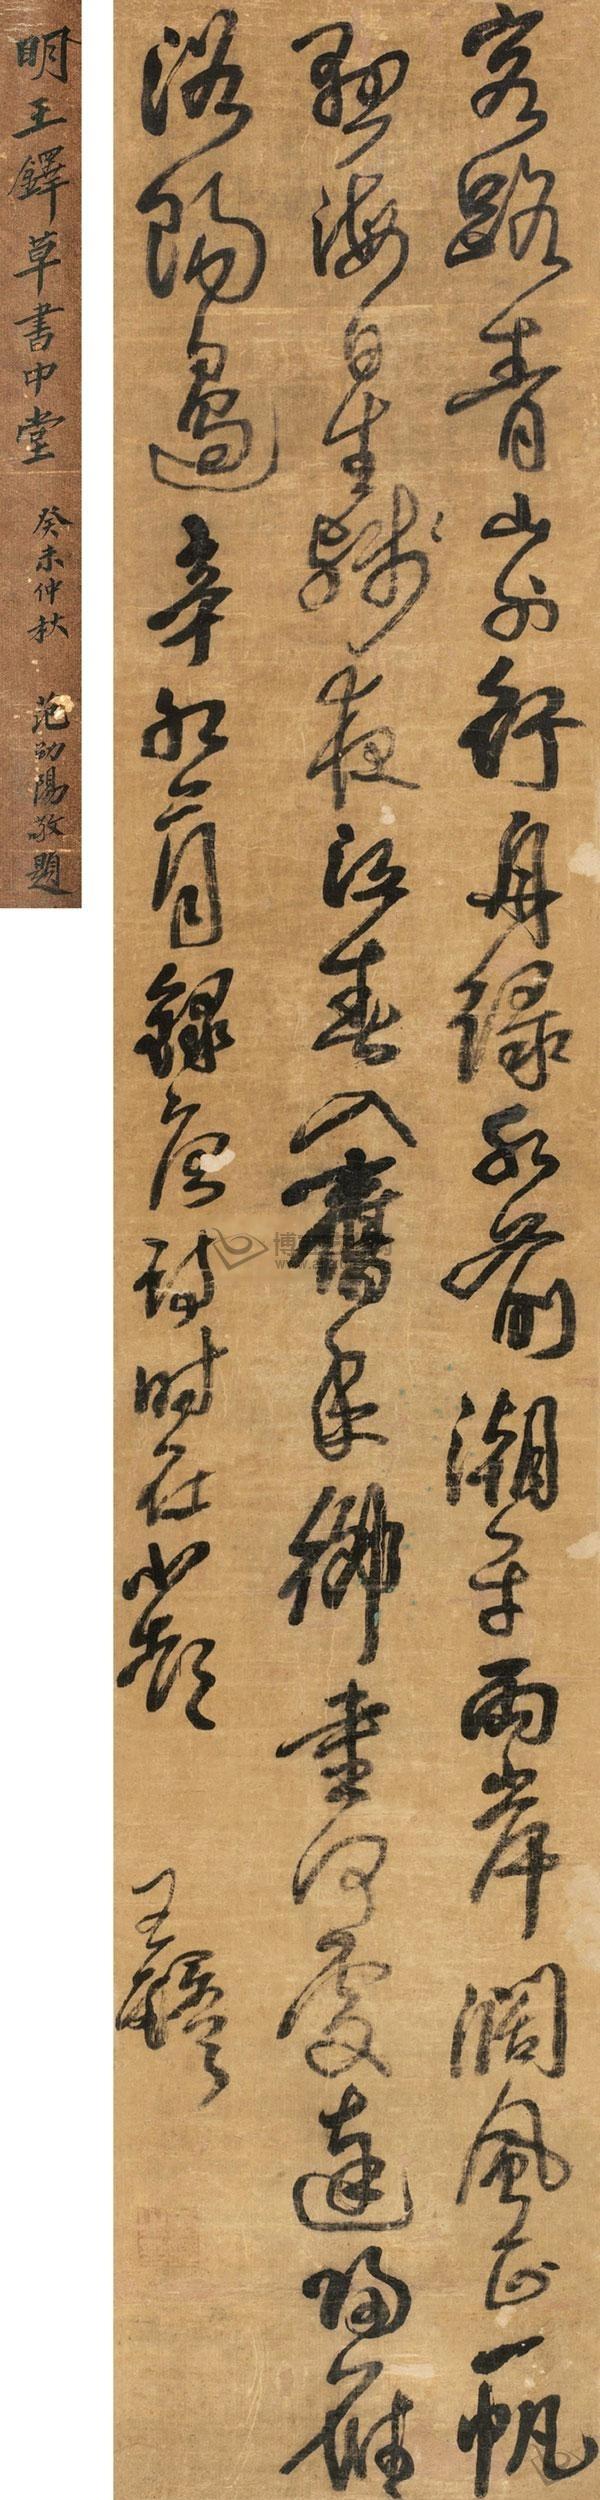 客路青山外行舟緑水前潮平兩岸濶風正一帆
懸海日生殘夜江春入舊年鄉書何處達歸雁
洛陽邊辛卯月録唐詩時在小王鐸
明王鐸草書中堂癸未仲秋范陽敬題